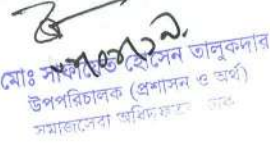 মোঃ সাফায়েত হোসেন তালুকদার
উপপরিচালক (প্রশাসন ও অর্থ)
সমাজসেবা অধিদফতর